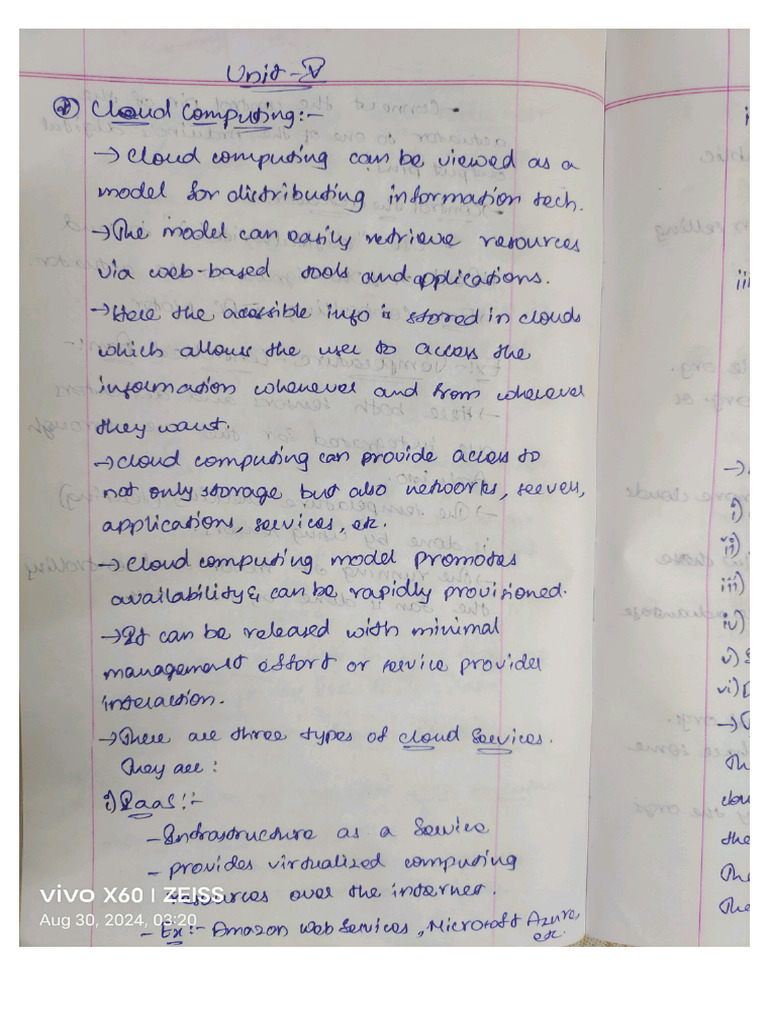 Unit-V
Cloud Computing:-
→ Cloud computing can be viewed as a
model for distributing information tech.
→ The model can easily retrieve resources
via web-based tools and applications.
→ Here the accessible info is stored in clouds
which allows the user to access the
information whenever and from wherever
they want.
→ cloud computing can provide access to
not only storage but also networks, servers,
applications, services, etc.
→ Cloud computing model promotes
availability & can be rapidly provisioned.
→ It can be released with minimal
management effort or service provider
interaction.
→ There are three types of cloud services.
They are:
i) PaaS:-
- Infrastructure as a Service
- provides virtualized computing
resources over the internet.
- Ex:- Amazon Web Services, Microsoft Azure
etc.
vivo X60 | ZEISS
Aug 30, 2024, 03:20
i)
ii)
iii)
iv)
v)
vi)